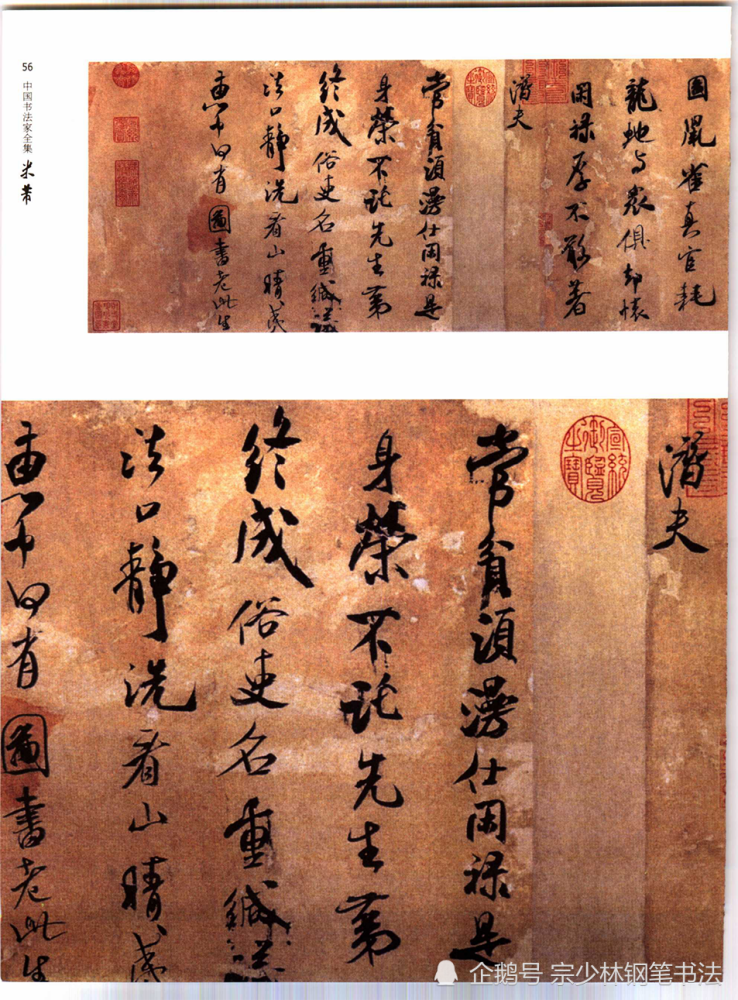 56 中国书法家全集 米芾
圖鼠雀真官耗
龍蛇與衆俱却懷
閑禄厚不敢著
潛夫
常貧須漫仕閑禄是
身榮不託先生第
終成俗吏名重緘議
法口靜洗看山晴夷
惠中何有圖書老此生
潛夫
宣統御覽之寶
常貧須漫仕閑禄是
身榮不託先生第
終成俗吏名重緘議
法口靜洗看山晴夷
惠中何有圖書老此生
企鹅号 宗少林钢笔书法